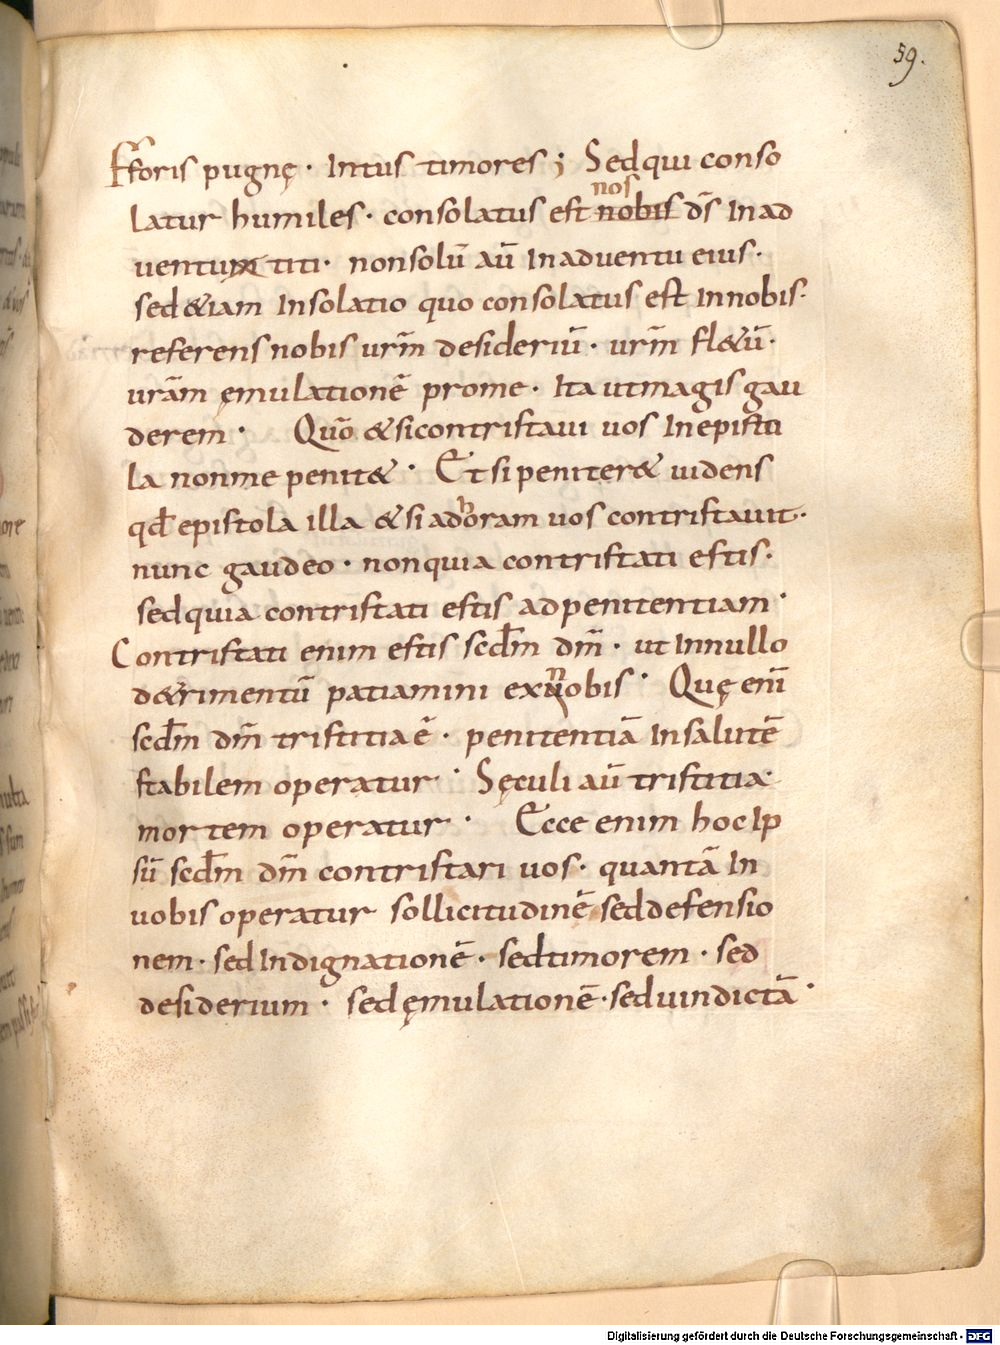 59.
Fforis pugnę · Intus timores ; Sed qui conso
nos
latur humiles · consolatus est nobis d̄s In ad
uentum titi · non solū aū In aduentu eius ·
sed &iam In solatio quo consolatus est In nobis ·
referens nobis ur̄m desideriū · ur̄m fl&ū ·
ur̄am ęmulationē pro me · Ita ut magis gau
derem · Quō & si contristaui uos In episto
la non me penit& · Et si peniter& uidens
qđ epistola illa & si ad horam uos contristauit ·
nunc gaudeo · non quia contristati estis ·
sed quia contristati estis ad penitentiam ·
Contristati enim estis scđm dm̄ · ut In nullo
d&rimentū patiamini ex nobis · Quę eni̅
scđm dm̄ tristitia ē · penitentiā In salutē
stabilem operatur · Sęculi aū tristitia
mortem operatur · Ecce enim hoc Ip
sū scđm dm̄ contristari uos · quantā In
uobis operatur sollicitudinē sed defensio
nem · sed Indignationē · sed timorem · sed
desiderium · sed ęmulationē · sed uindictā ·
Digitalisierung gefördert durch die Deutsche Forschungsgemeinschaft - DFG